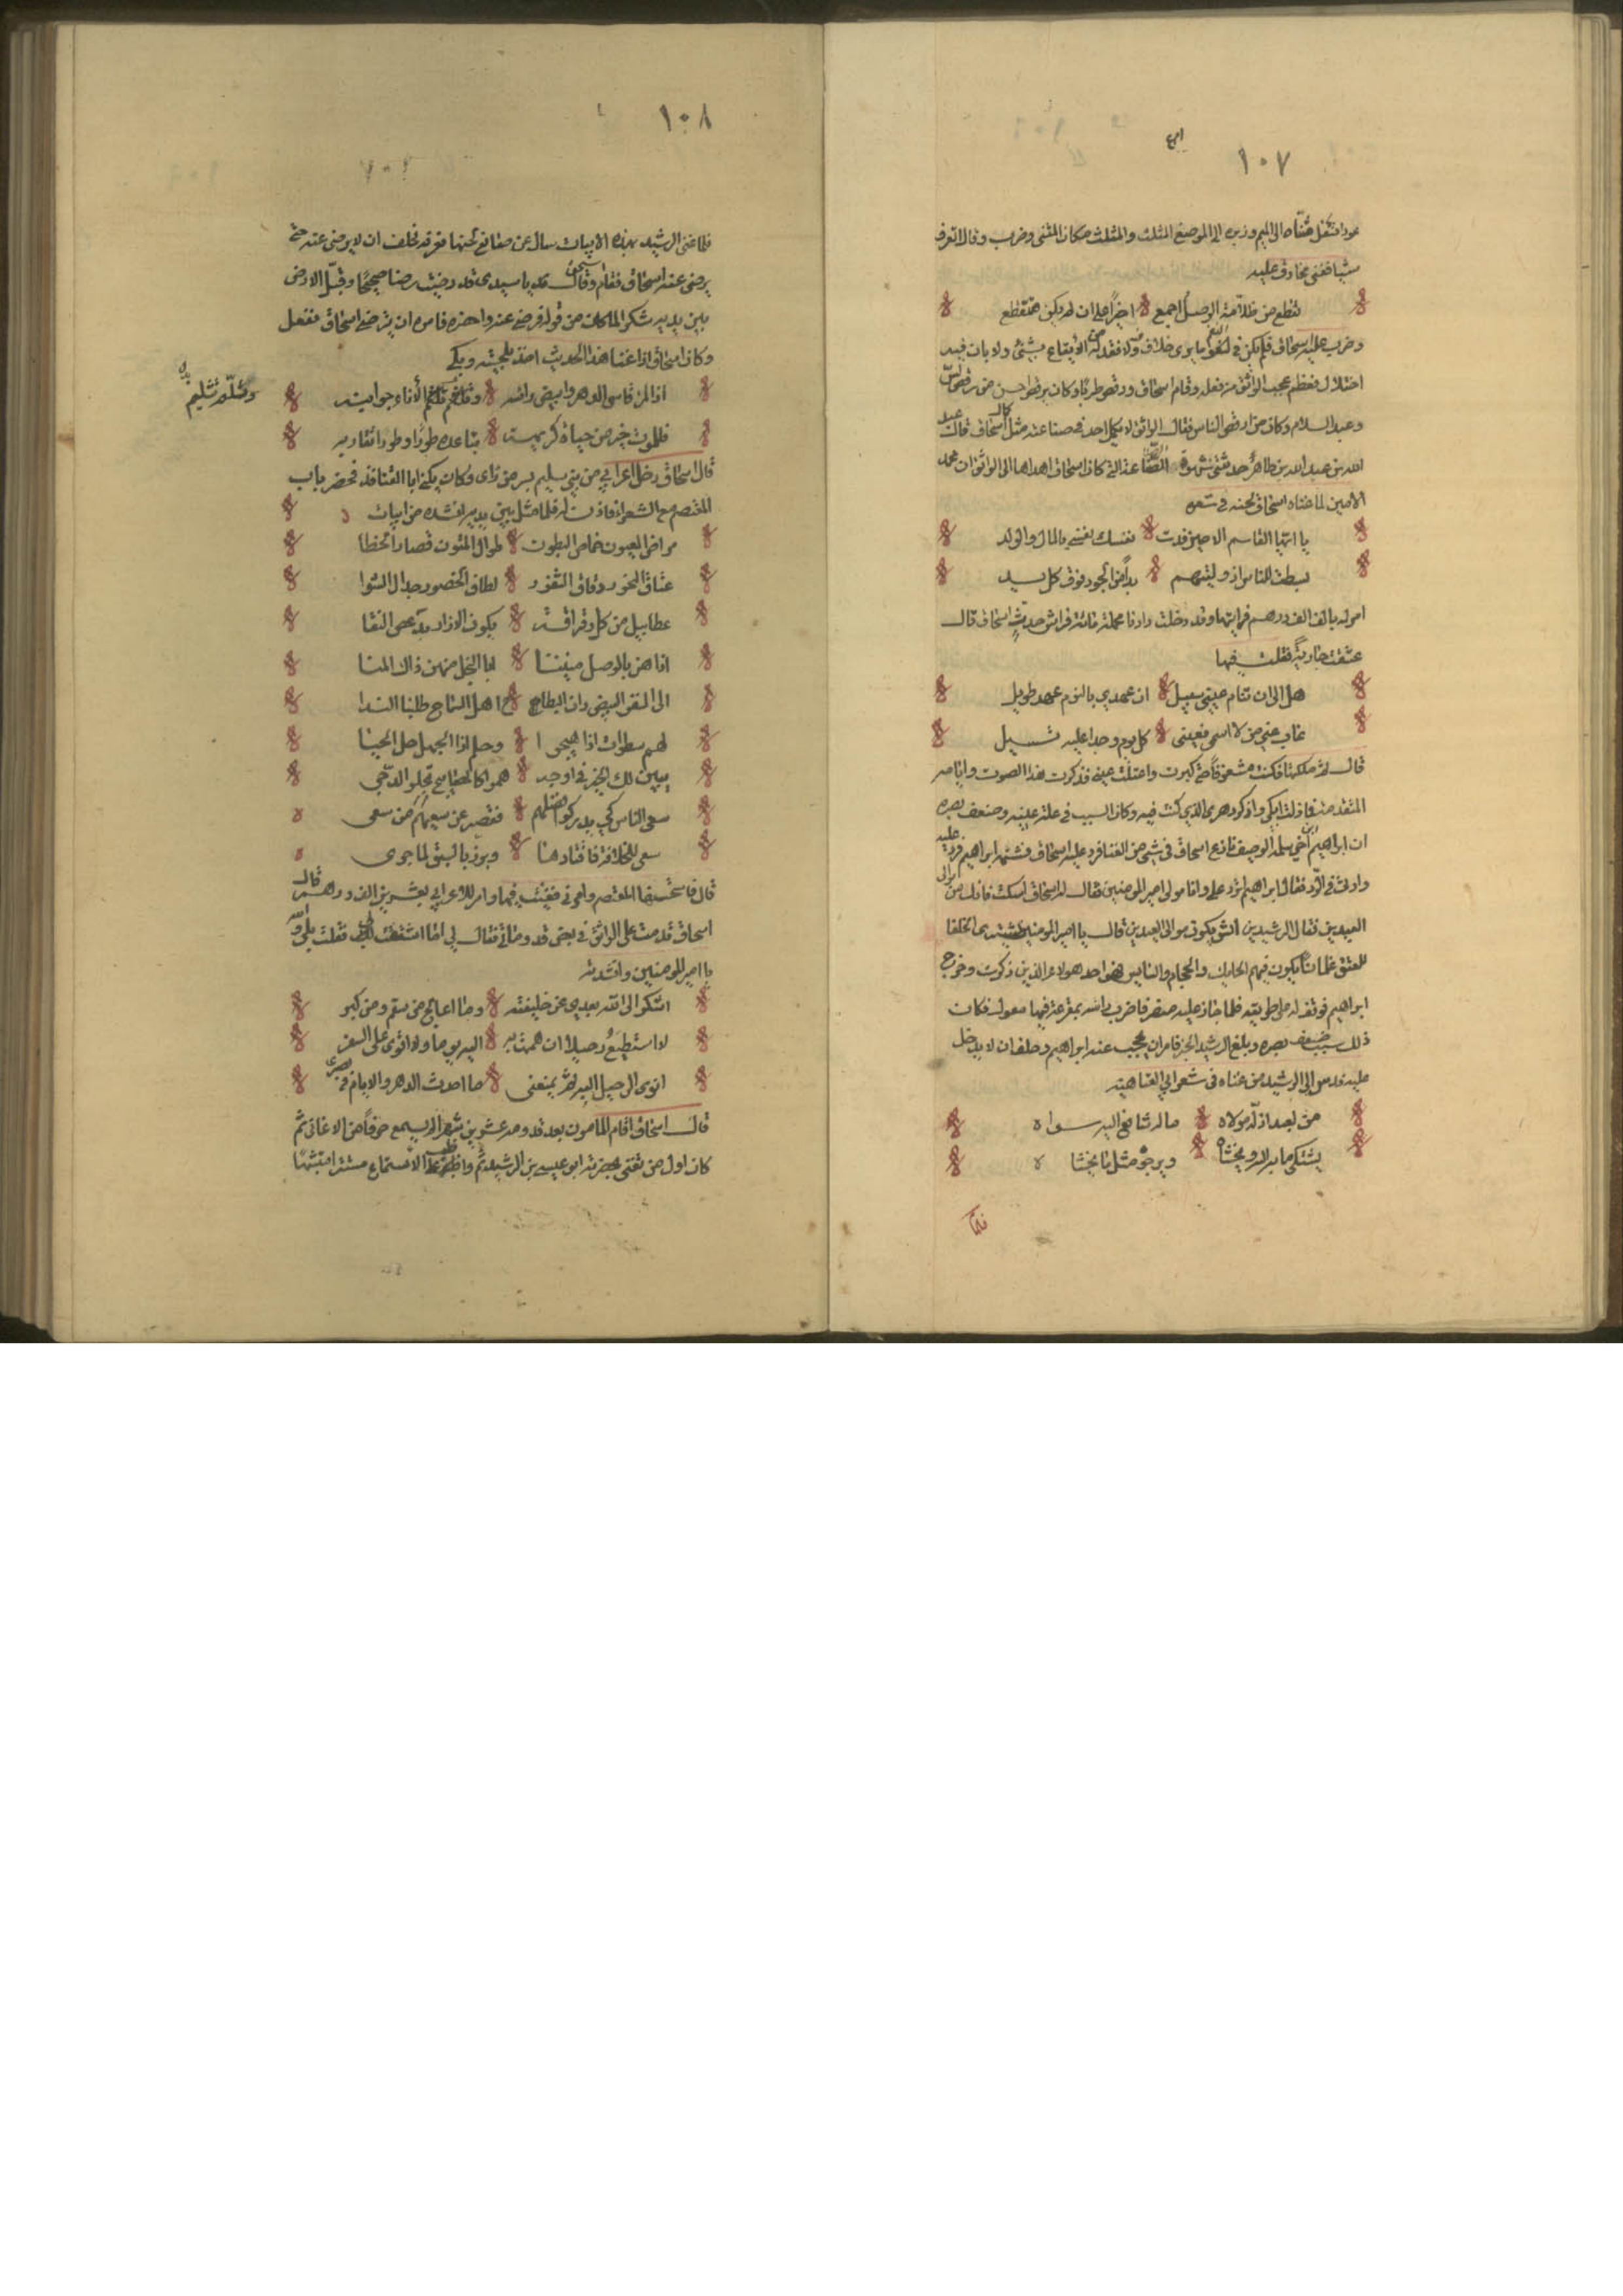 ١٠٧
عودا فنقل مثناه الى البم وزيره الى الموضع المثلث والمثلث مكان المثنى وضرب وقال تعرف
شيا فغنى مخارق عليه
تقطع من ظلامة الوصل اجمع اخيرا على ان لم يكن متقطع
وضرب عليه اسحاق فلم يكن في خلاف ولا فقد من الايقاع بشئ ولا بان فيه
اختلال فعظم عجب الواثق من فعله وقام اسحاق ورقص طربا وكان يرقص احسن من رقص
وعبد السلام وكان من ارقص الناس فقال الواثق لا يكمل احد في صناعته مثل كمال اسحاق قال عبيد
الله بن عبد الله بن طاهر حدثتني شهوة الصناعة التي كان اسحاق اهداها الى الواثق ان محمد
الامين لما غناه اسحاق لحنه في شعره
يا ايها القاسم الامين فدت نفسك نفسي بالمال والولد
بسطت للناس اذ وليتهم يدا من الجود فوق كل يد
امر له بالف الف درهم فرايتها وقد دخلت دارنا محملة مائة فراش حدث اسحاق قال
عشقت جارية فقلت فيها
هل الى ان تنام عيني سبيل ان عهدي بالنوم عهد طويل
غاب عني من لا اسمي فعيني كل يوم وجدا عليه تسيل
قال ثم ملكتها فكنت مشغوفا حتى كبرت واعتلت عيني فذكرت هذا الصوت وايامه
المتقدمة فما زلت ابكي واذكر دهري الذي كنت فيه وكان السبب في علة عينيه وضعف بصره
ان ابراهيم ابن اخي سلمة الوصيف نازع اسحاق في شئ من الغنا فرد عليه اسحاق فشتمه ابراهيم فرد عليه
واربى في الرد فقال ابراهيم اترد علي وانا مولى امير المومنين فقال له اسحاق اسكت فانك من موالي
العيدين فقال الرشيد من اي شئ يكون موالي العيدين قال يا امير المومنين يشترى للخلفا
للعتق غلمانا يكون فيهم الحايك والحجام والسايس فهو احد هولاء الذين ذكرت وخرج
ابراهيم فوقف له على طريقه فلما جاز عليه منصرفا ضرب راسه بمقرعة فيها معول فكان
ذلك سبب ضعف بصره وبلغ الرشيد الخبر فامر ان يحجب عنه ابراهيم وحلف ان لا يدخل
عليه فدس الى الرشيد من غناه في شعر ابي العتاهية
من لعبد اذله مولاه ماله شافع اليه سواه
يشتكي ما به اليه ويخشاه ويرجوه مثل ما يخشا ه
فلما
١٠٨
فلما غنى الرشيد بهذه الابيات سال عن صانع لحنها فعرفه فحلف ان لا يرضى عنه حتى
يرضى عنه اسحاق فقام اسحق وقال قد يا سيدي قد رضيت رضا صحيحا وقبل الارض
بين يديه شكرا لما كان من قوله فرضي عنه واحضره فامره ان يترضى اسحاق ففعل
وكان اسحاق اذا غنا هذا الحديث اخذ بلحيته ويبكي
اذا المرء قاسى الدهر وابيض راسه وثلم تثليم الأناء جوانبه
وثلم تثليم
فللموت خير من حياة كريهة تباعده طورا وطورا تقاربه
قال اسحاق دخل اعرابي من بني سليم بسر من راى وكان يكنى ابا القنافذ فحضر باب
المعتصم مع الشعراء فاذن له فلما مثل بين يديه انشده من ابيات
مراض العيون خماص البطون طوال المتون قصار الخطا
عتاق النحور دقاق الثغور لطاف الخصور جدال الشوا
عطابيل من كل رقراقة يكون الازار بدعص النقا
اذا هن بالوصل مننيننا ابا البخل منهن ذاك المنا
الى النفر البيض دان البطاح اهل السماح طلبنا الندا
لهم سطوات اذا هيجوا وحلم اذا الجهل حل الحبا
يبين لك الخير في اوجه همو كالمصابيح تجلو الدجى
سعى الناس كي يدركوا فضلهم فقصر عن سعيهم من سعى
سعى للخلافة فاقتادها وبرز بالسبق لما جرى
قال فاستحسنها المعتصم وامرني فغنيت فيها وامر للاعرابي بعشرين الف درهم قال
اسحاق قدمت على الواثق في بعض قدوماتي فقال لي اما اشتقت الي فقلت بلى والله
يا امير المومنين وانشدته
اشكو الى الله بعدي عن خليفته وما اعالج من سقم ومن كبر
لا استطيع رحيلا ان هممت به اليه يوما ولا اقوى على السفر
انوى الرحيل اليه ثم يمنعني ما احدث الدهر والايام في بصري
قال اسحاق اقام المامون بعد قدومه عشرين شهرا لم يسمع حرفا من الاغاني ثم
كان اول من تغنى بحضرته ابو عيسى بن الرشيد ثم واظب على الاستماع مستترا متشبها